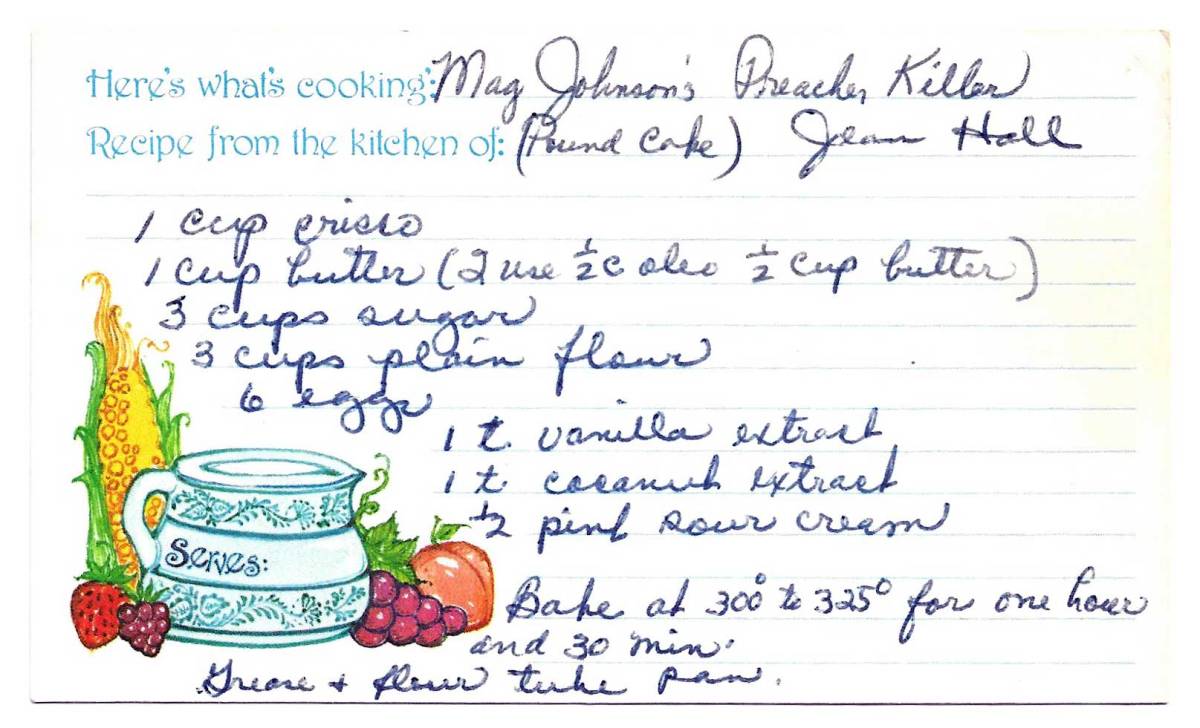 Here's what's cooking: Mag Johnson's Preacher Killer
Recipe from the kitchen of: (Pound Cake) Jean Hall
1 cup crisco
1 cup butter (I use ½ c oleo ½ cup butter)
3 cups sugar
3 cups plain flour
6 eggs
1 t. vanilla extract
1 t. coconut extract
½ pint sour cream
Serves:
Bake at 300° to 325° for one hour
and 30 min.
Grease + flour tube pan.